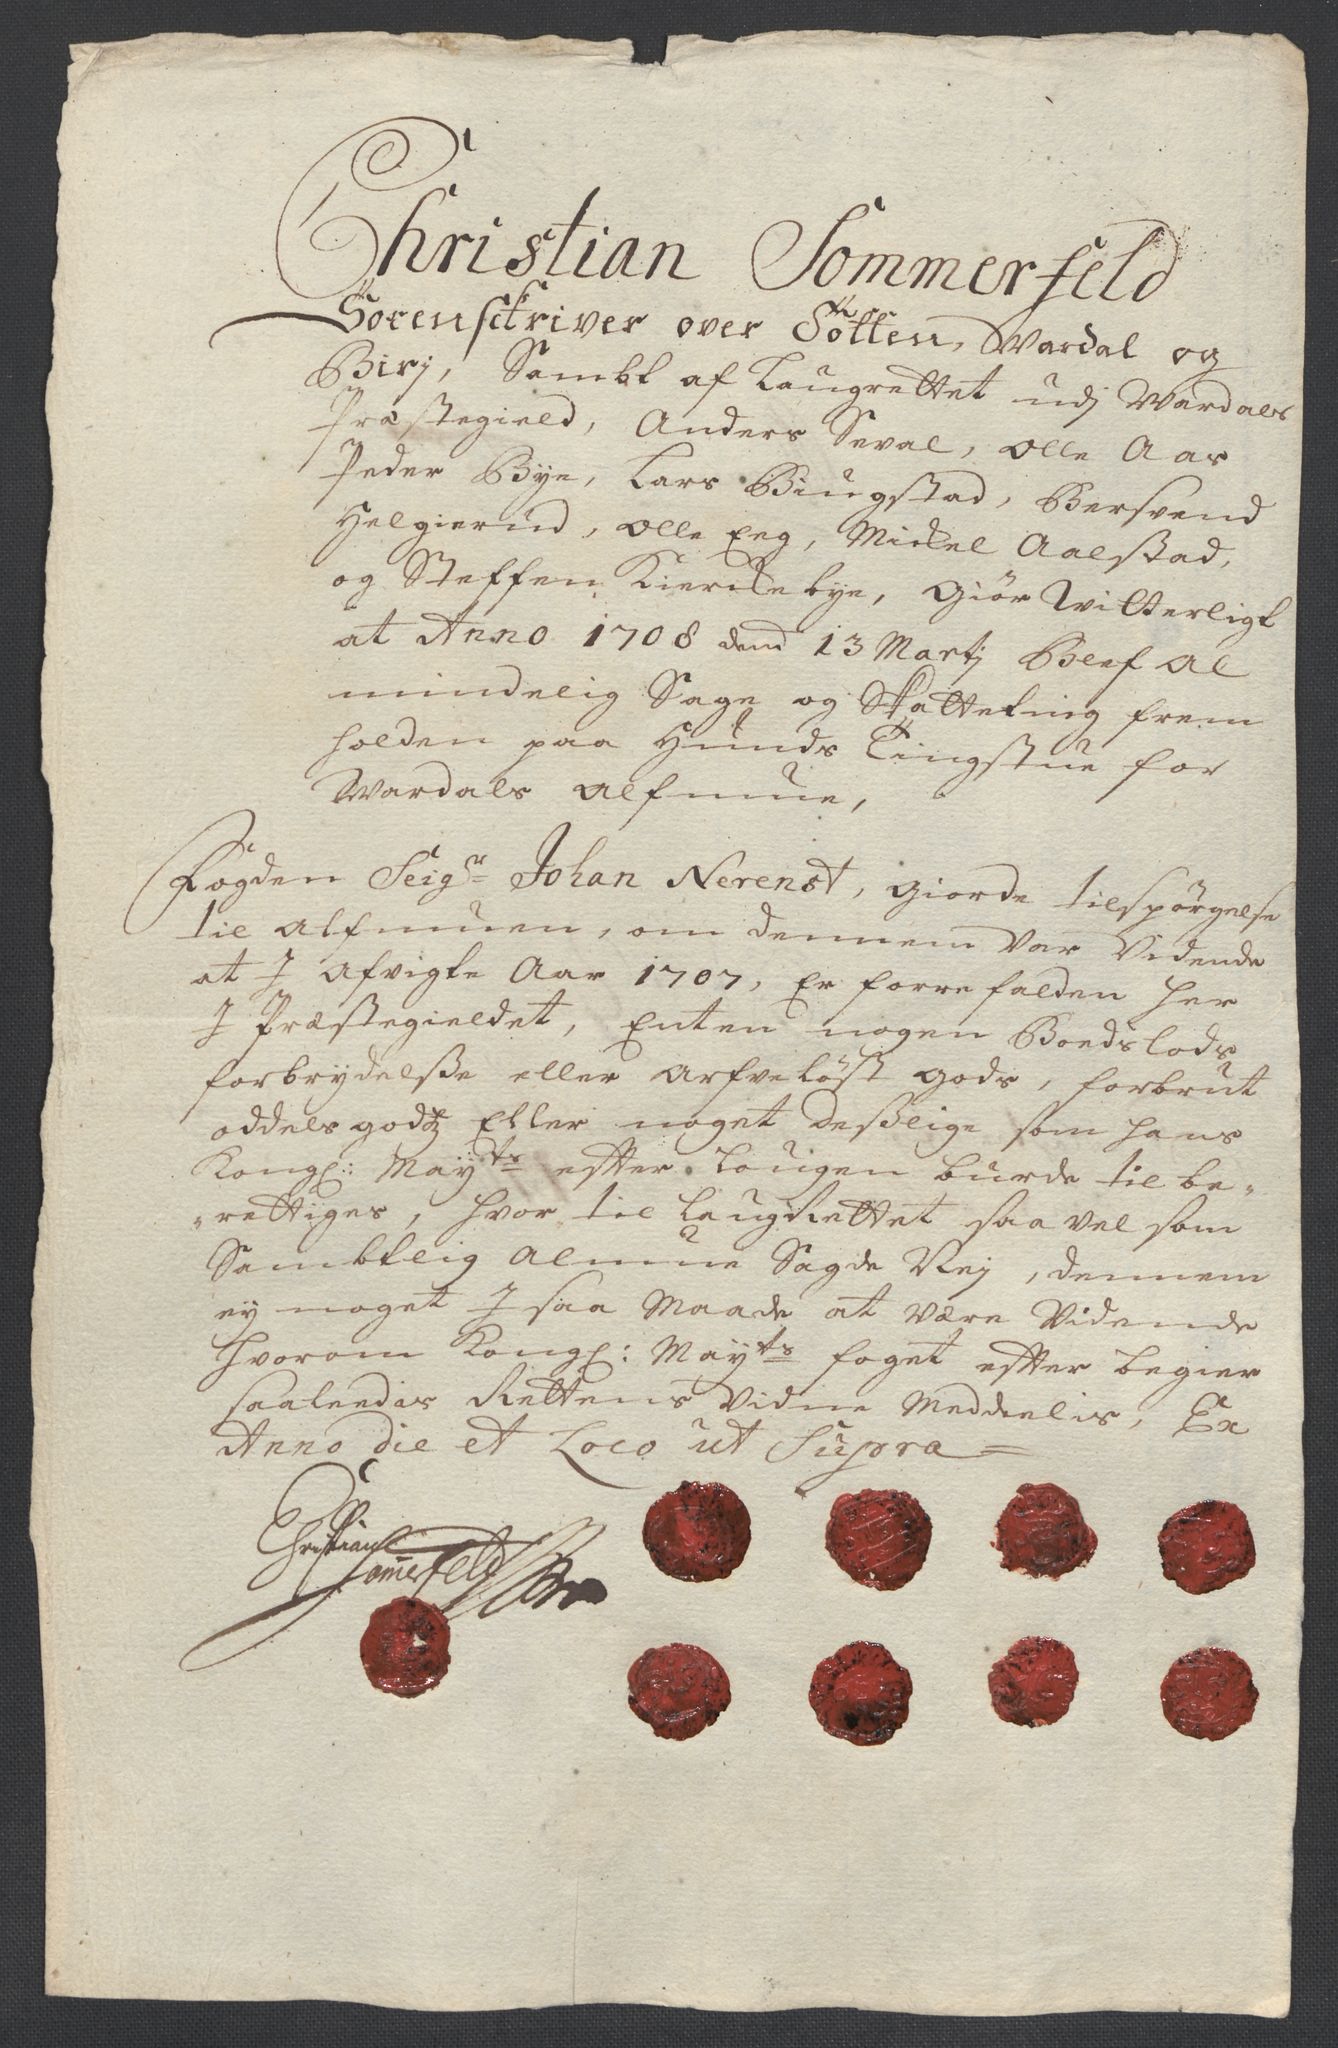 Christian Sommerfeld
Sorenschriver over Totten, Wardal og
Birj, Sambt af Laugrettet udj Wardals
Præstegield, Anders Seval, Olle Aas
Peder Bye, Lars Biugstad, Bersvend
Helgierud, Olle Eeg, Mickel Aalstad,
og Steffen Kierckebye, Giör Witterligt
at Anno 1708 dend 13 Martj Blef Al
mindelig Sage og Skatteting frem
holden paa Hunds Tingstue for
Wardals Alfmue,
Fogden Seigr Johan Nerenst, giorde tilspörgelse
til Alfmuen, om dennem var vidende
at J Afvigte Aar 1707, Er forrefalden her
J Præstegieldet, Enten nogen Boedslods
forbrydelsse eller Arfvelöst gods, forbrut
oddels godtz Eller noget desslige som hans
Kongl: Mayts effter Lougen burde til be-
-rettiges, hvor til LaugRettet saa vel som
Sambtlig Almue Sagde Nej, dennem
ey noget J saa Maade at være vidende
hvorom Kongl: Mayts foget effter begier
saaleedis Rettens Vidne Meddeelis, Ex
Anno die et Loco ut Supra
Christian
Somerfeld